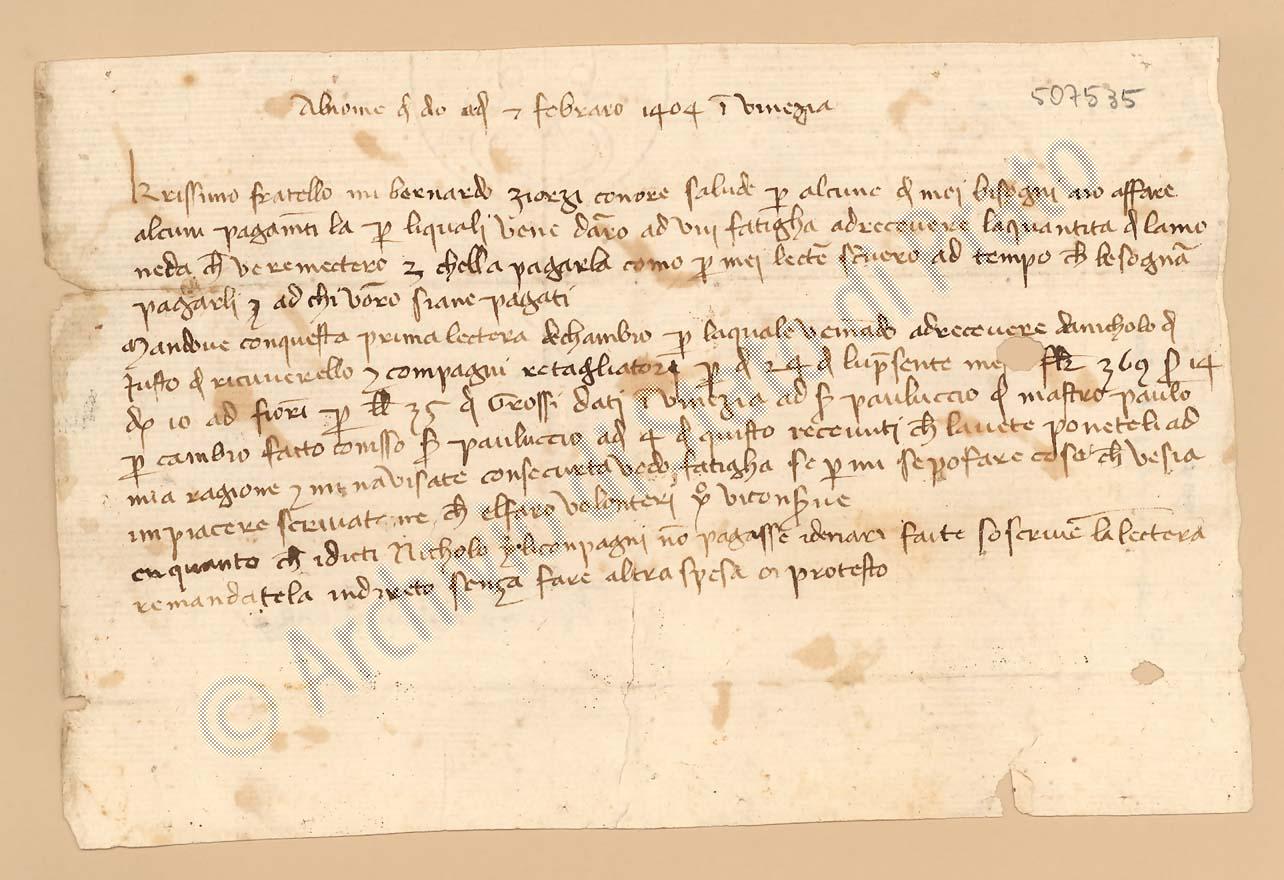 Alnome d dio adi 7 febraro 1404 ī vinezia
507535
Krissimo fratello mi bernardo ziorzi conore salude p alcune d mei bisogni aio affare
alcuni pagamti la p liquali vene daro ad vui fatigha adrecevere laquantita d lamo
neda ch veremectero z chella pagarla como p mei lecte scvero ad tempo ch besogna
pagarli z ad chi voro siane pagati
Mandove conquesta prima lectera dechambio p laquale ve mādo adrecevere danicholo d
Justo d ricuverello z compagni retagliatori p d 24 d lupsente me 369 s 14
dp 10 ad fiorī p 35 d Grossi dati ī vinezia ad s pauluccio d mastro paulo
p cambio fatto conisso s pauluccio adi 4 d quisto recevuti ch lavete poneteli ad
mia ragione z me navisate consecurta vedo fatigha se p mi sepo fare cosa ch vesia
impiacere scrivateme ch elfaro volonteri xpo viconsve
enquanto ch idicti Nicholo licompagni nō pagassē idenari faite soscrivē la lectera
remandatela indireto senza fare altra spesa di protesto
© Archivio di Stato di Prato